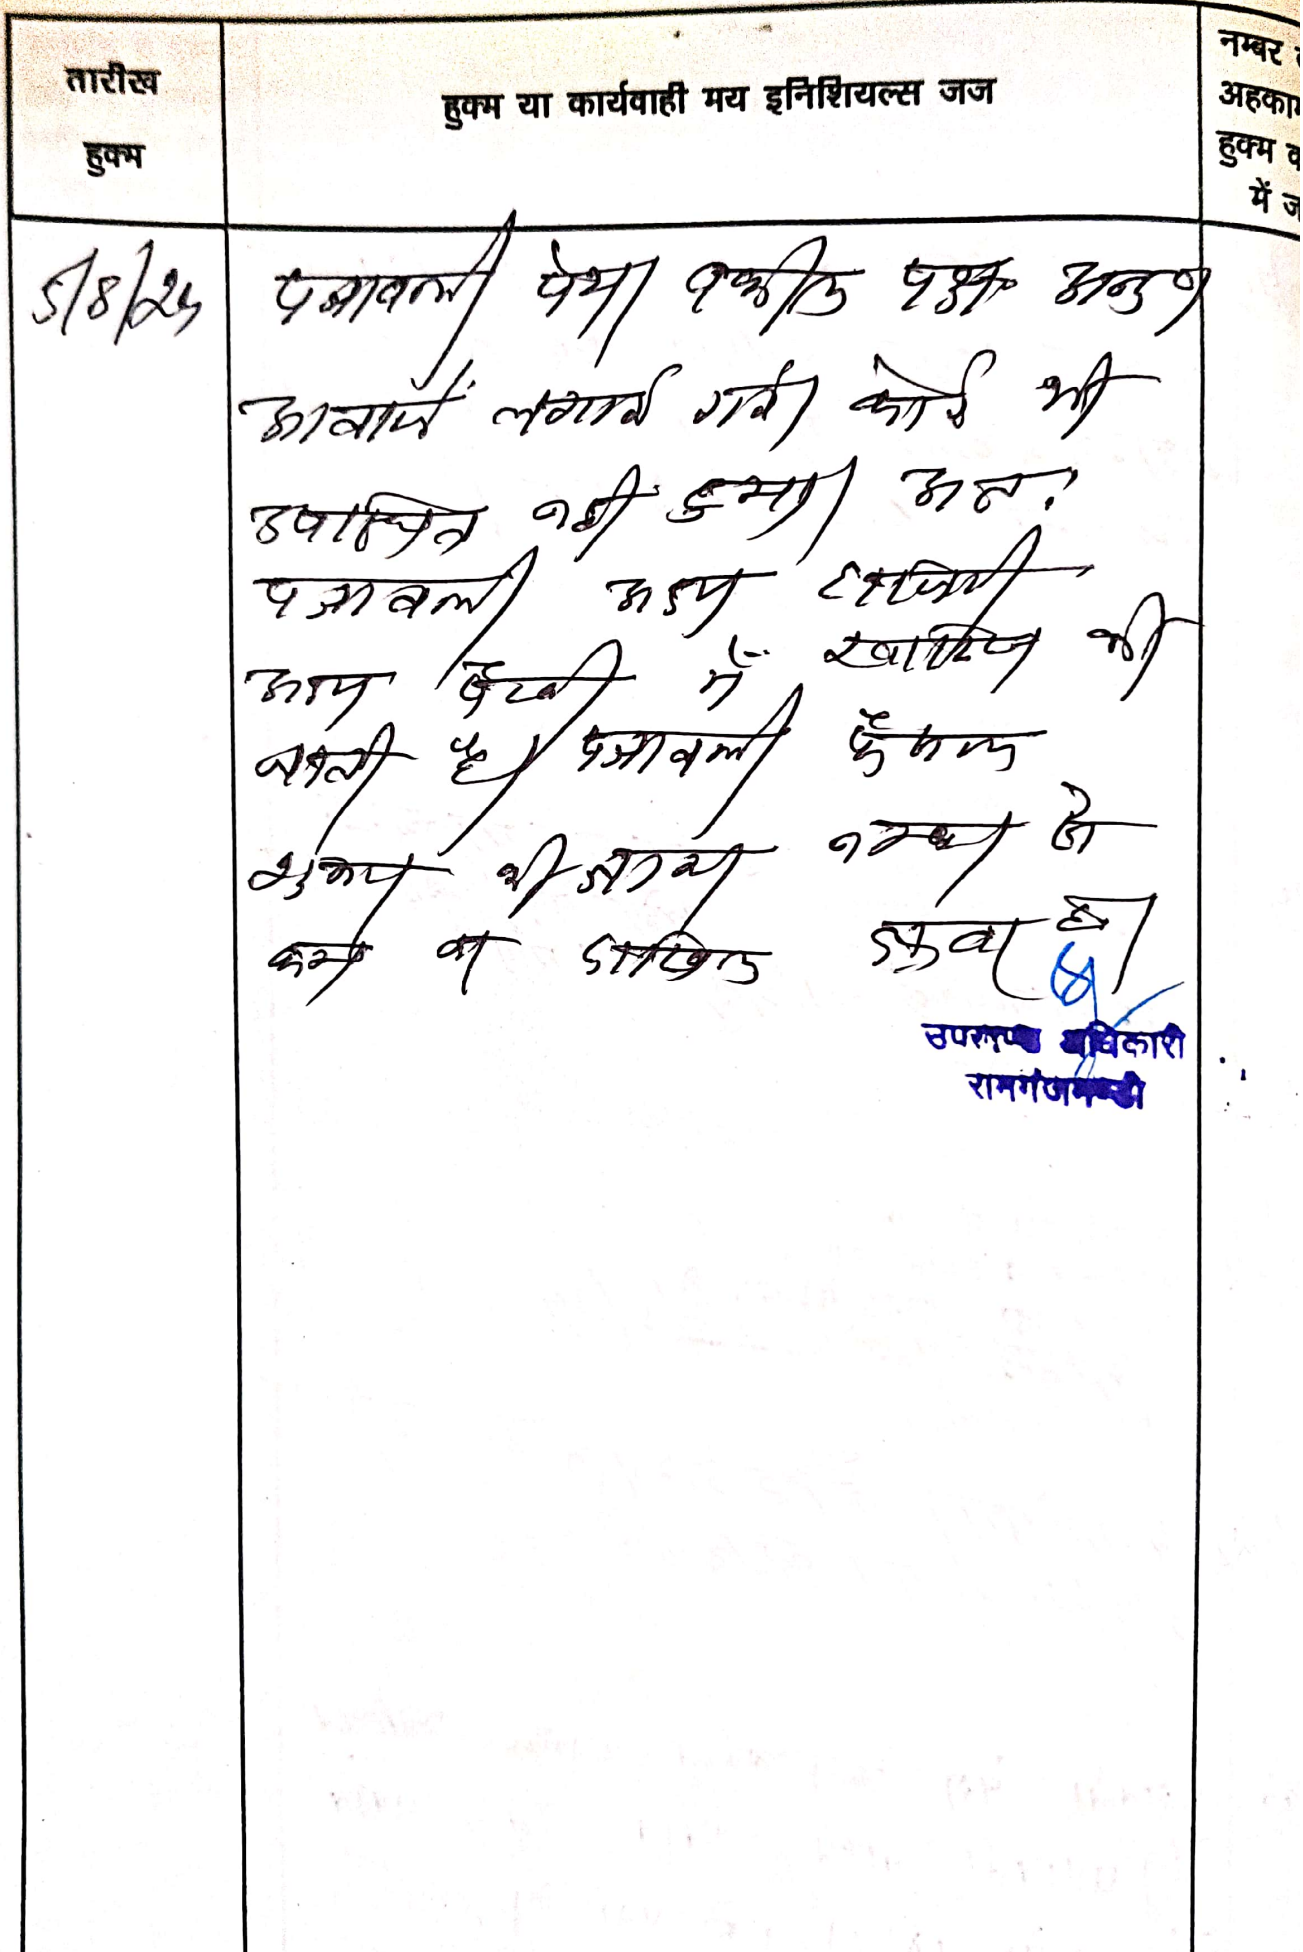 तारीख
हुक्म
हुक्म या कार्यवाही मय इनिशियल्स जज
नम्बर
अहकाम
हुक्म
में ज
5/8/25
पत्रावली पेश। वकील पक्ष अनु०।
आवाजें लगाई गई। कोई भी
उपस्थित नही हुआ। अतः
पत्रावली अदम हाजिरी
अदम पैरवी में खारिज की
जाती है। पत्रावली फैसल
शुमार की जाकर नम्बर से
कम व दाखिल दफ्तर हो।
उपखण्ड अधिकारी
रामगंजमण्डी